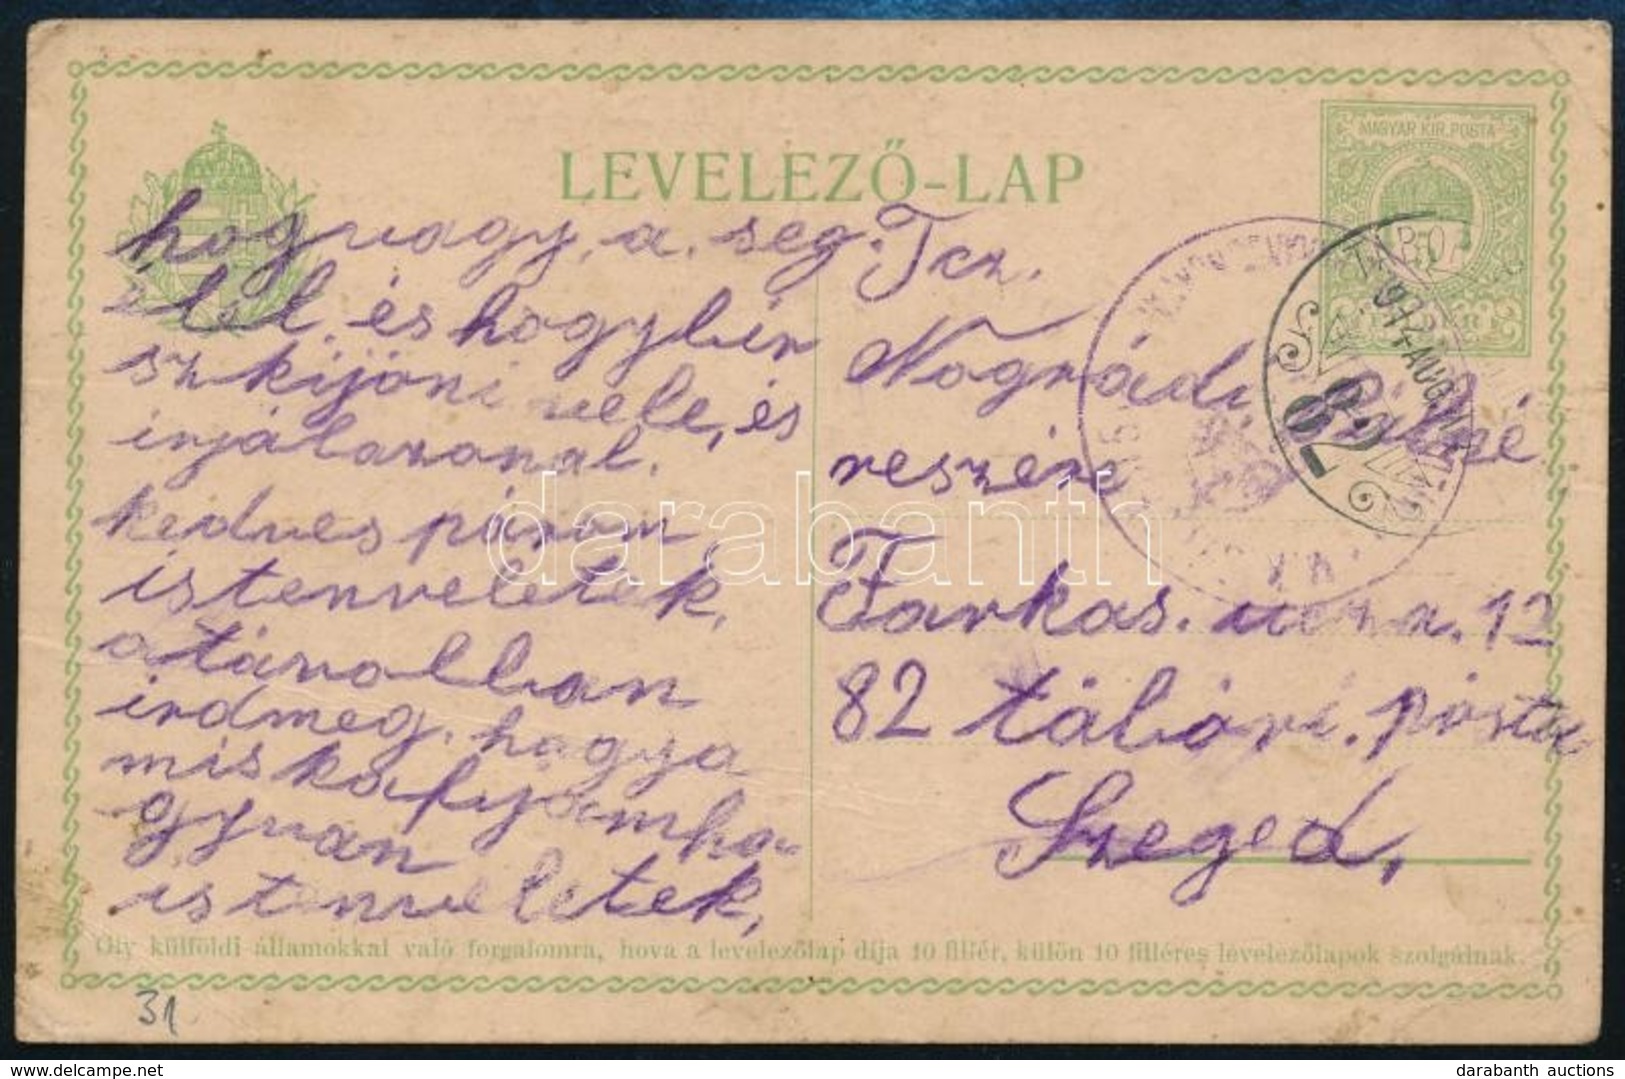 LEVELEZŐ-LAP
MAGYAR KIR. POSTA
hogvagy, a. seg.
itél, és hogybir
sz kijöni vele, és
irjálazonal.
kedves párom
istenveletek,
a távolban
irdmeg, hogya
miskafijamha
gyvan
istenveletek,
Tcz.
Nográdi Pálné
részére
Farkas. ucza. 12
82 tábori. pósta
Szeged,
TÁBO
917 AUG
82
Oly külföldi államokkal való forgalomra, hova a levelezőlap díja 10 fillér, külön 10 filléres levelezőlapok szolgálnak.
31
darabanth
delcampe.net
darabanth auctions